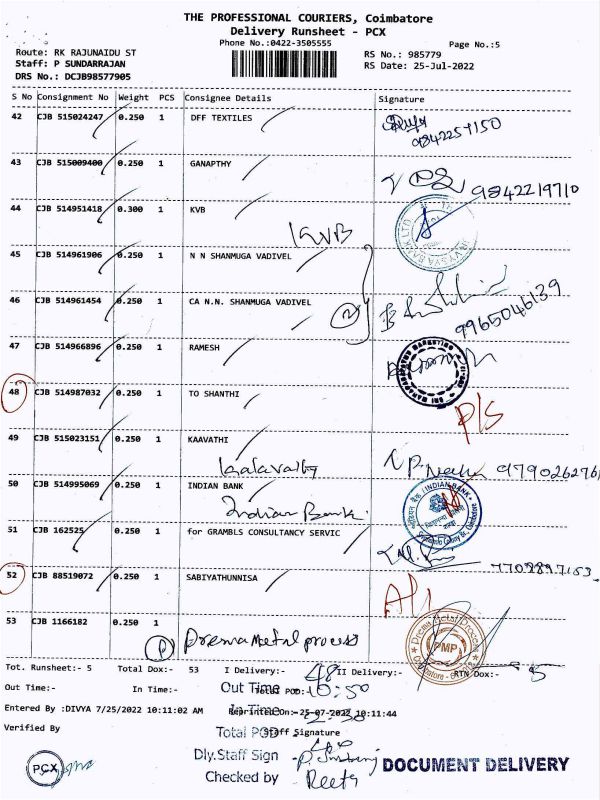 THE PROFESSIONAL COURIERS, Coimbatore
Delivery Runsheet - PCX
Phone No.:0422-3505555
Page No.:5
Route: RK RAJUNAIDU ST
RS No.: 985779
Staff: P SUNDARRAJAN
RS Date: 25-Jul-2022
DRS No.: DCJB98577905
S No Consignment No Weight PCS Consignee Details Signature
42 CJB 515024247 0.250 1 DFF TEXTILES
9842257150
43 CJB 515009400 0.250 1 GANAPTHY
9842219710
44 CJB 514951418 0.300 1 KVB
KVB
45 CJB 514961906 0.250 1 N N SHANMUGA VADIVEL
46 CJB 514961454 0.250 1 CA N.N. SHANMUGA VADIVEL
2
9965046139
47 CJB 514966896 0.250 1 RAMESH
48 CJB 514987032 0.250 1 TO SHANTHI
P/S
49 CJB 515023151 0.250 1 KAAVATHI
Kalavathy
50 CJB 514995069 0.250 1 INDIAN BANK
INDIAN BANK
Indian Bank.
51 CJB 162525 0.250 1 for GRAMBLS CONSULTANCY SERVIC
52 CJB 88519072 0.250 1 SABIYATHUNNISA
53 CJB 1166182 0.250 1
P Prema Metal process
Prema Metal Process
PMP
Tot. Runsheet:- 5 Total Dox:- 53 I Delivery:- 48 II Delivery:- RTN Dox:- 5
Out Time:- In Time:- Out Time 10:50
Entered By :DIVYA 7/25/2022 10:11:02 AM Reprinted On:- 25-07-2022 10:11:44
In Time
Total POD Staff Signature
Verified By
Dly.Staff Sign
DOCUMENT DELIVERY
PCX
Checked by Reeta